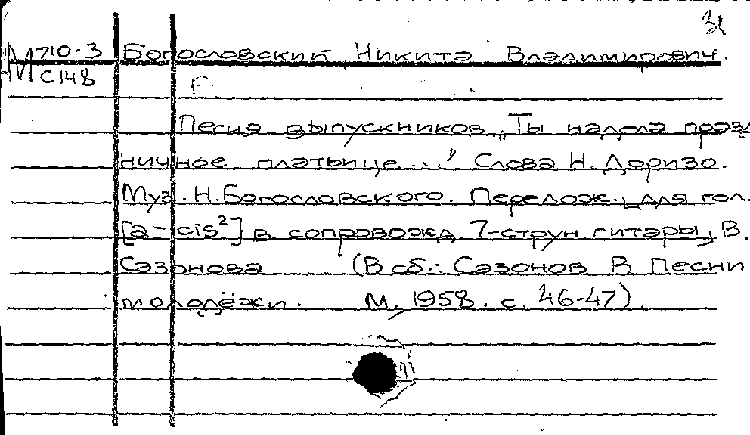 М 710-3 Богословский Никита Владимирович.
С148
Песня выпускников „Ты надела празд
ничное платьице...” Слова Н. Доризо.
Муз. Н. Богословского. Перелож. для гол.
[a - cis²] в сопровожд. 7-струн гитары, В.
Сазонова (В сб.: Сазонов В. Песни
молодёжи. М. 1958. с. 46-47).